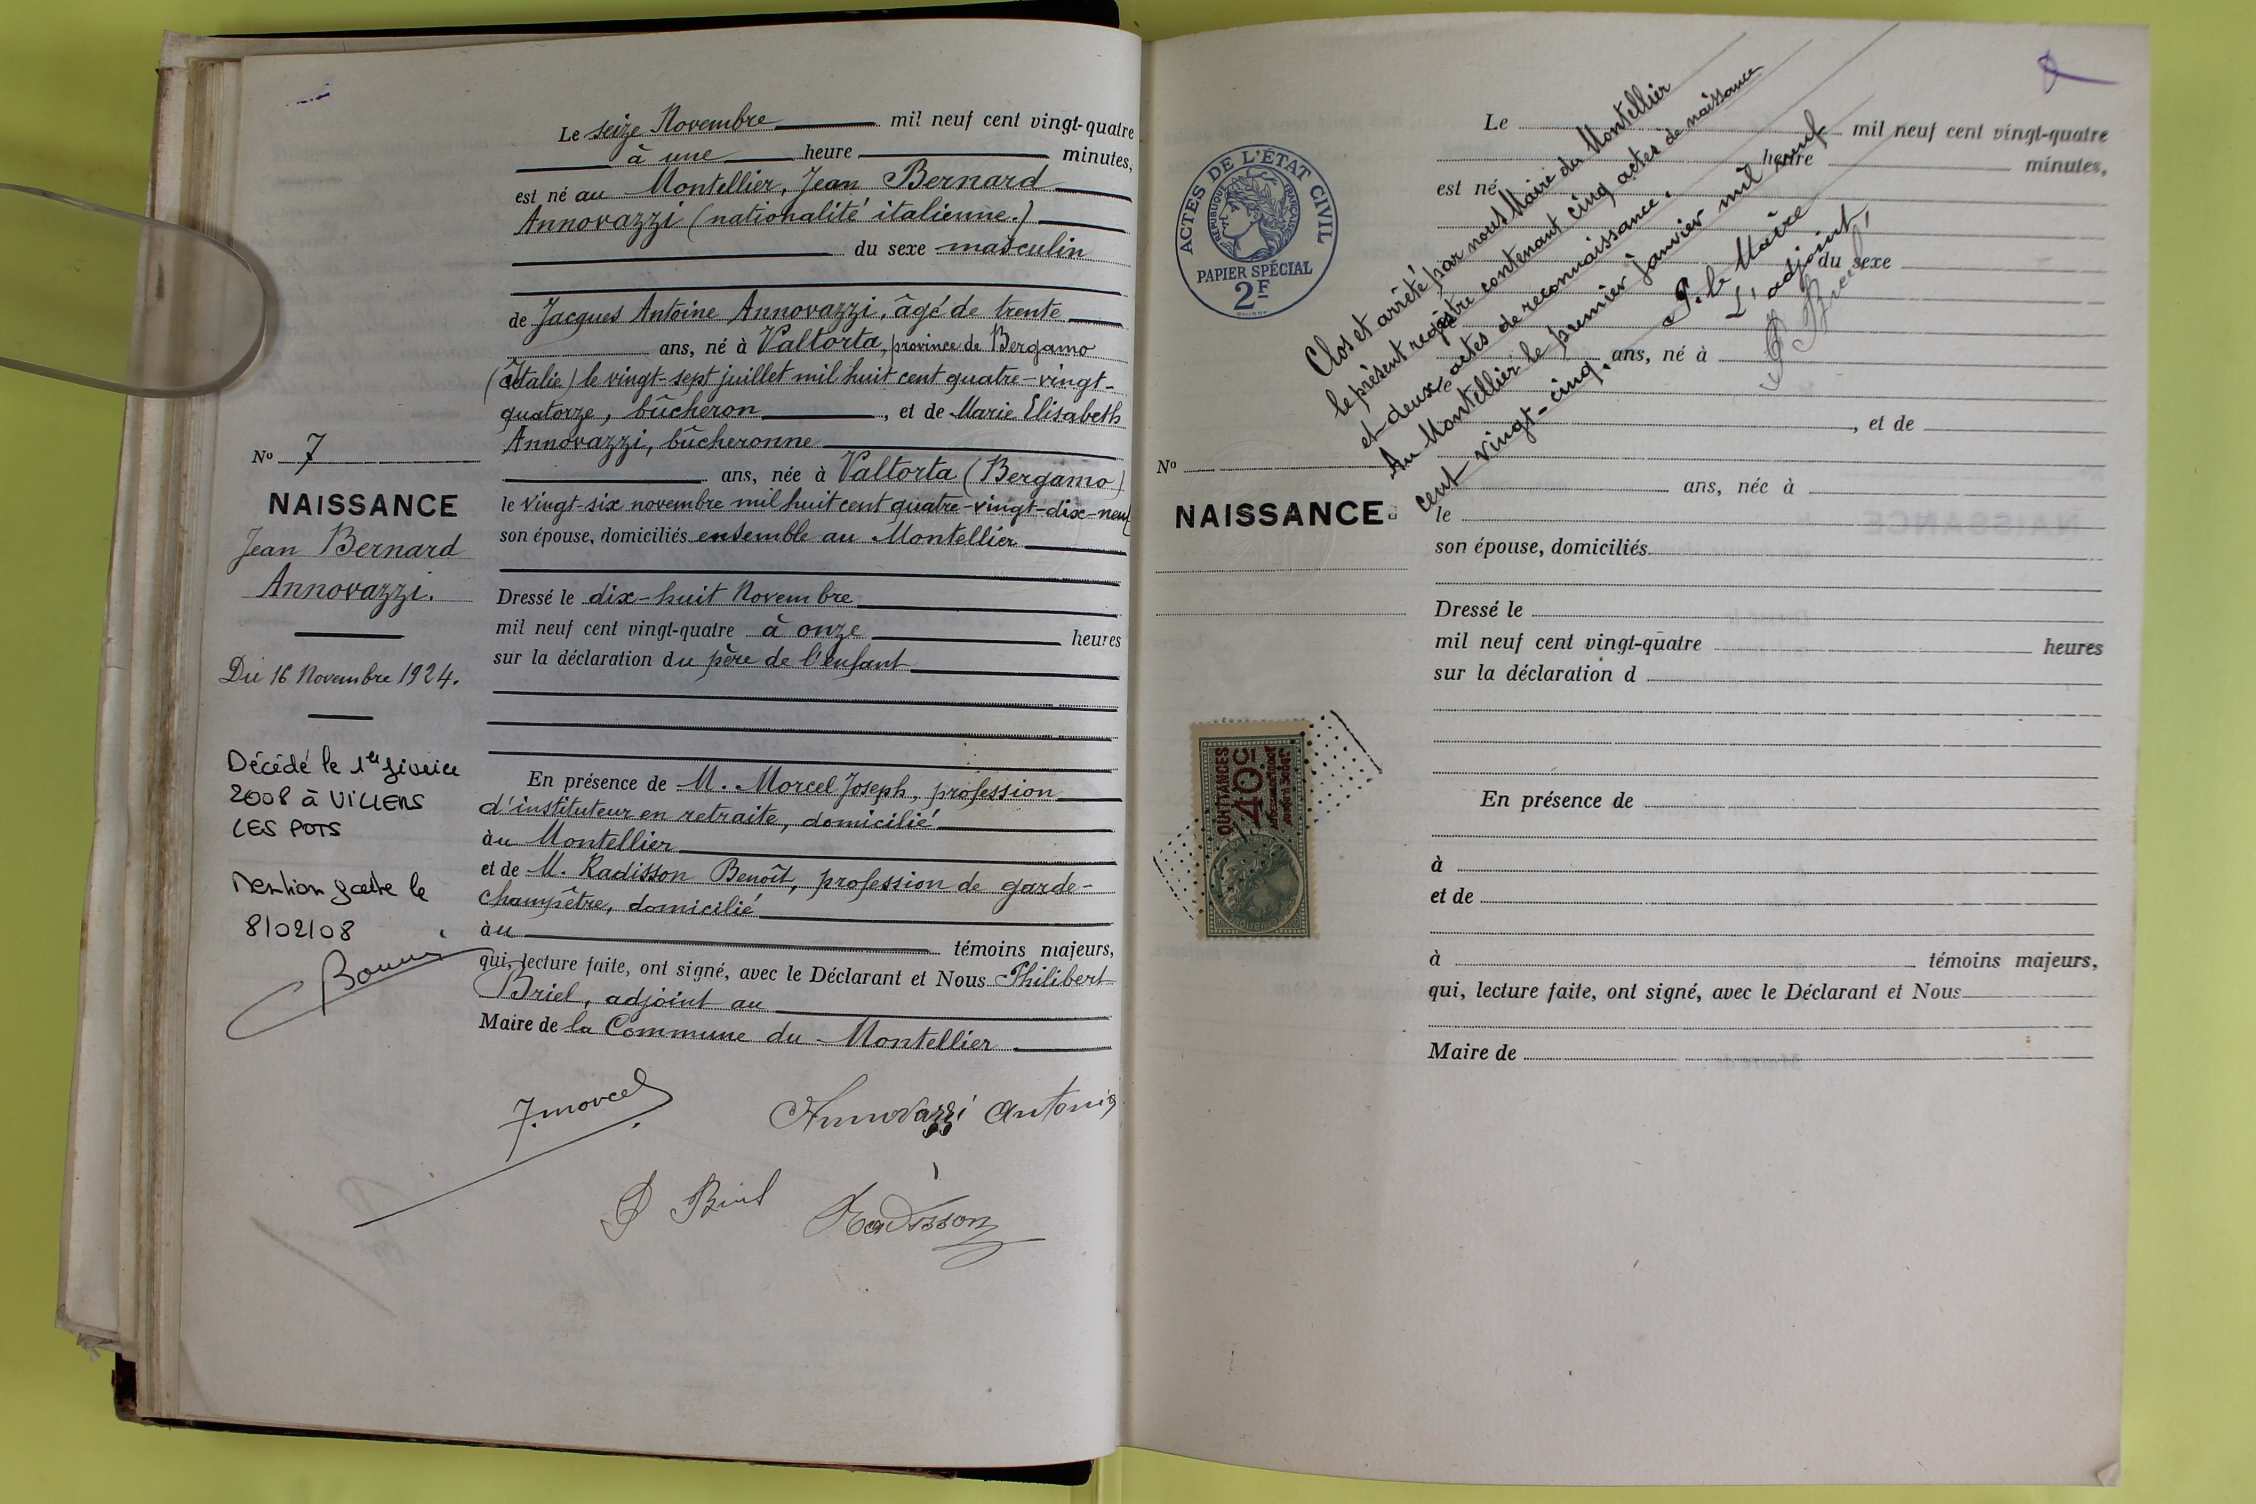 Le seize Novembre mil neuf cent vingt-quatre
à une heure minutes,
est né au Montellier, Jean Bernard
Annovazzi (nationalité italienne.)
du sexe masculin
de Jacques Antoine Annovazzi, âgé de trente
ans, né à Valtorta, province de Bergamo
(Italie) le vingt-sept juillet mil huit cent quatre-vingt-
quatorze, bûcheron, et de Marie Elisabeth
Annovazzi, bûcheronne
ans, née à Valtorta (Bergamo)
le vingt-six novembre mil huit cent quatre-vingt-dix-neuf
son épouse, domiciliés ensemble au Montellier
Dressé le dix-huit Novembre
mil neuf cent vingt-quatre à onze heures
sur la déclaration du père de l'enfant
En présence de M. Morcel Joseph, profession
d'instituteur en retraite, domicilié
au Montellier
et de M. Radisson Benoît, profession de garde-
champêtre, domicilié
au témoins majeurs,
qui, lecture faite, ont signé, avec le Déclarant et Nous Philibert
Briel, adjoint au
Maire de la Commune du Montellier
J. Morcel
Annovazzi Antonio
P Briel
Radisson
No 7
NAISSANCE
Jean Bernard
Annovazzi.
Du 16 Novembre 1924.
Décédé le 1er février
2008 à VILLERS
LES POTS
Mention faite le
8/02/08
ACTES DE L'ÉTAT CIVIL
RÉPUBLIQUE FRANÇAISE
PAPIER SPÉCIAL
2F
Clos et arrêté par nous Maire du Montellier
le présent registre contenant cinq actes de naissance
et deux actes de reconnaissance.
Au Montellier le premier janvier mil neuf
cent vingt-cinq.
P. le Maire
L'adjoint,
P Briel
Le mil neuf cent vingt-quatre
heure minutes,
est né
du sexe
de
ans, né à
le
, et de
No
NAISSANCE
ans, née à
le
son épouse, domiciliés
Dressé le
mil neuf cent vingt-quatre heures
sur la déclaration d
QUITTANCES
40c
En présence de
à
et de
à témoins majeurs,
qui, lecture faite, ont signé, avec le Déclarant et Nous
Maire de